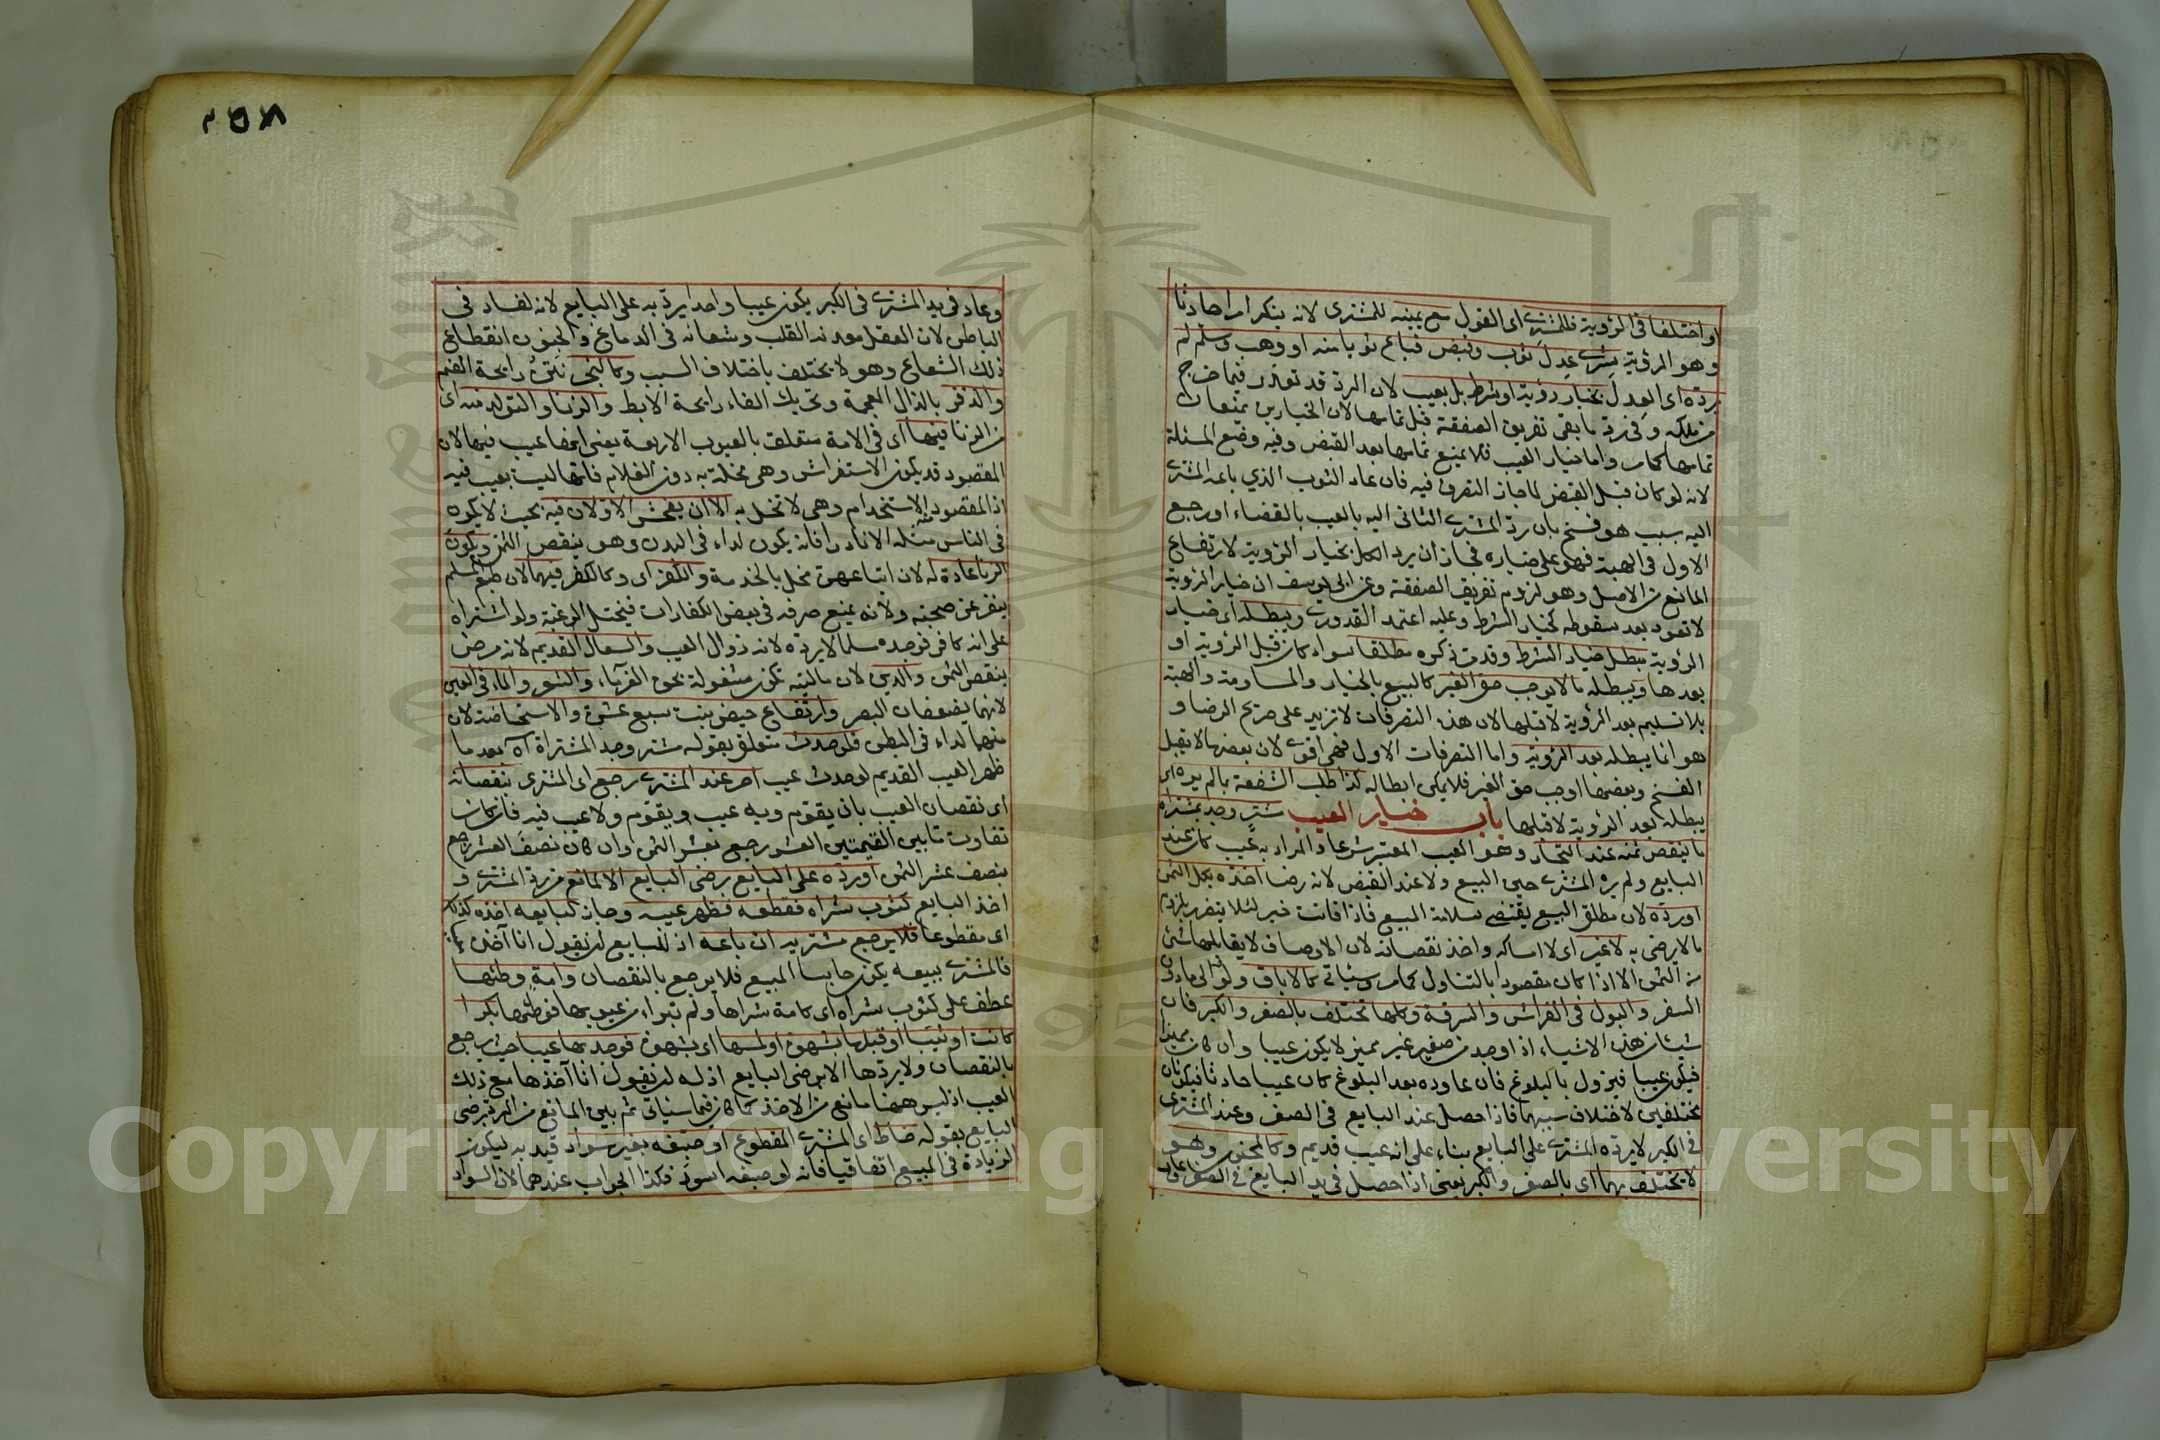 او اختلفا فى الرؤية فللمشترى اى القول مع يمينه للمشترى لانه ينكر امرا حادثا
وهو الرؤية شرى عدل ثوب وقبض فباع ثوبا منه او وهب وسلم لم
يرده اى العدل بخيار رؤية او شرط بل بعيب لان الرد قد تعذر فيما خرج
من ملكه وفى رد ما بقى تفريق الصفقة قبل تمامها لان الخيارين يمنعان
تمامها كما مر واما خيار العيب فلا يمنع تمامها بعد القبض وفيه وضع المسئلة
لانه لو كان قبل القبض لما جاز التفرق فيه فان عاد الثوب الذي باعه المشترى
اليه بسبب هو فسخ بان رد المشترى الثانى اليه بالعيب بالقضاء او رجع
الاول فى الهبة فهو على خياره فجاز ان يرد الكل بخيار الرؤية لارتفاع
المانع من الاصل وهو لزوم تفريق الصفقة وعن ابى يوسف ان خيار الرؤية
لا تعود بعد سقوطه كخيار الشرط وعليه اعتمد القدورى ويبطله اى خيار
الرؤية مبطل خيار الشرط وقد مر ذكره مطلقا سواء كان قبل الرؤية او
بعدها ويبطله ما لا يوجب حق الغير كالبيع بالخيار والمساومة والهبة
بلا تسليم بعد الرؤية لا قبلها لان هذه التصرفات لا تزيد على صريح الرضا و
هو انما يبطله بعد الرؤية واما التصرفات الاول فهى اقوى لان بعضها لا يقبل
الفسخ وبعضها اوجب حق الغير فلا يمكن ابطاله كذا طلب الشفعة بما لم يره اى
يبطله بعد الرؤية لا قبلها باب خيار العيب مشتر وجد بمشراه
ما ينقص ثمنه عند التجار وهو العيب المعتبر شرعا والمراد به عيب كان عند
البايع ولم يره المشترى حين البيع ولا عند القبض لانه رضا اخذه بكل الثمن
او رده لان مطلق البيع يقتضى سلامة المبيع فاذا فاتت خير لئلا يتضرر بلزوم
ما لا يرضى به لا غير اى لا امساكه واخذ نقصانه لان الاوصاف لا يقابلها شئ
من الثمن الا اذا كان مقصودا بالتناول كما مر وسياتى كالاباق ولو الى ما دون
السفر والبول فى الفراش والسرقة وكلها تختلف بالصغر والكبر فان
شيئا من هذه الاشياء اذا وجد من صغير غير مميز لا يكون عيبا وان كان مميزا
فيكون عيبا فيزول بالبلوغ فان عاوده بعد البلوغ كان عيبا حادثا فيكونان
مختلفين لاختلاف سببهما فاذا حصل عند البايع فى الصغر وعند المشترى
فى الكبر لا يرده المشترى على البايع بناء على انه عيب قديم وكالجنون وهو
لا يختلف بهما اى بالصغر والكبر يعنى اذا حصل فى يد البايع فى الصغر
٢٥٨
وعاد فى يد المشترى فى الكبر يكون عيبا واحدا يرد به على البايع لانه لفساد فى
الباطن لان العقل معدنه القلب وشعاعه فى الدماغ والجنون انقطاع
ذلك الشعاع وهو لا يختلف باختلاف السبب وكالبخر نتن رايحة الفم
والذفر بالذال المعجمة وتحريك الفاء رايحة الابط والزنا والتولد منه اى
من الزنا فيها اى فى الامة متعلق بالعيوب الاربعة يعنى انها عيب فيها لان
المقصود قد يكون الاستفراش وهى مخلة به دون الغلام فانها ليست بعيب فيه
اذ المقصود منه الاستخدام وهى لا تخل به الا ان يفحش الاولان فيه بحيث لا يكون
فى الناس مثله الا نادرا فانه يكون لداء فى البدن وهو ينقص الثمن ويكون
الزنا عادة له لان اتباعهن مخل بالخدمة والكفر اى وكالكفر فيهما لان طبع المسلم
ينفر عن صحبته ولانه يمنع صرفه فى بعض الكفارات فيختل الرغبة ولو اشتراه
على انه كافر فوجده مسلما لا يرده لانه زوال العيب والسعال القديم لانه مرض
ينقص الثمن والدين لان ماليته تكون مشغولة بحق الغرماء والشعر والماء فى العين
لانهما يضعفان البصر وارتفاع حيض بنت سبع عشرة والاستحاضة لان
منهما لداء فى البطن فلو حدث متعلق بقوله مشتر وجد المشتراة آه بعد ما
ظهر العيب القديم لو حدث عيب آخر عند المشترى رجع اى المشترى بنقصانه
اى نقصان العيب بان يقوم وبه عيب ويقوم ولا عيب فيه فان كان
تفاوت ما بين القيمتين العشر رجع بعشر الثمن وان كان نصف العشر رجع
بنصف عشر الثمن او رده على البايع برضى البايع الا لمانع من رد المشترى و
اخذ البايع كثوب شراه فقطعه فظهر عيبه وجاز لبايعه اخذه كذلك
اى مقطوعا فلا يرجع مشتريه ان باعه اذ للبايع ان يقول انا آخذه كذلك
فالمشترى ببيعه يكون حابسا المبيع فلا يرجع بالنقصان وامة وطئها
عطف على كثوب شراه اى كامة شراها ولم تبراء من عيوبها فوطئها بكرا
كانت او ثيبا او قبلها بشهوة او لمسها اى بشهوة فوجد بها عيبا حيث يرجع
بالنقصان ولا يردها الا برضى البايع اذ له ان يقول انا آخذها مع ذلك
العيب اذ ليس ههنا مانع من الاخذ كما كان فيما سياتى ثم بين المانع من الرد برضى
البايع بقوله خاط اى المشترى المقطوع او صبغه بغير سواد قيد به ليكون
الزيادة فى المبيع اتفاقيا فانه لو صبغه اسود فكذا الجواب عندهما لان السواد
Copyright © King Saud University